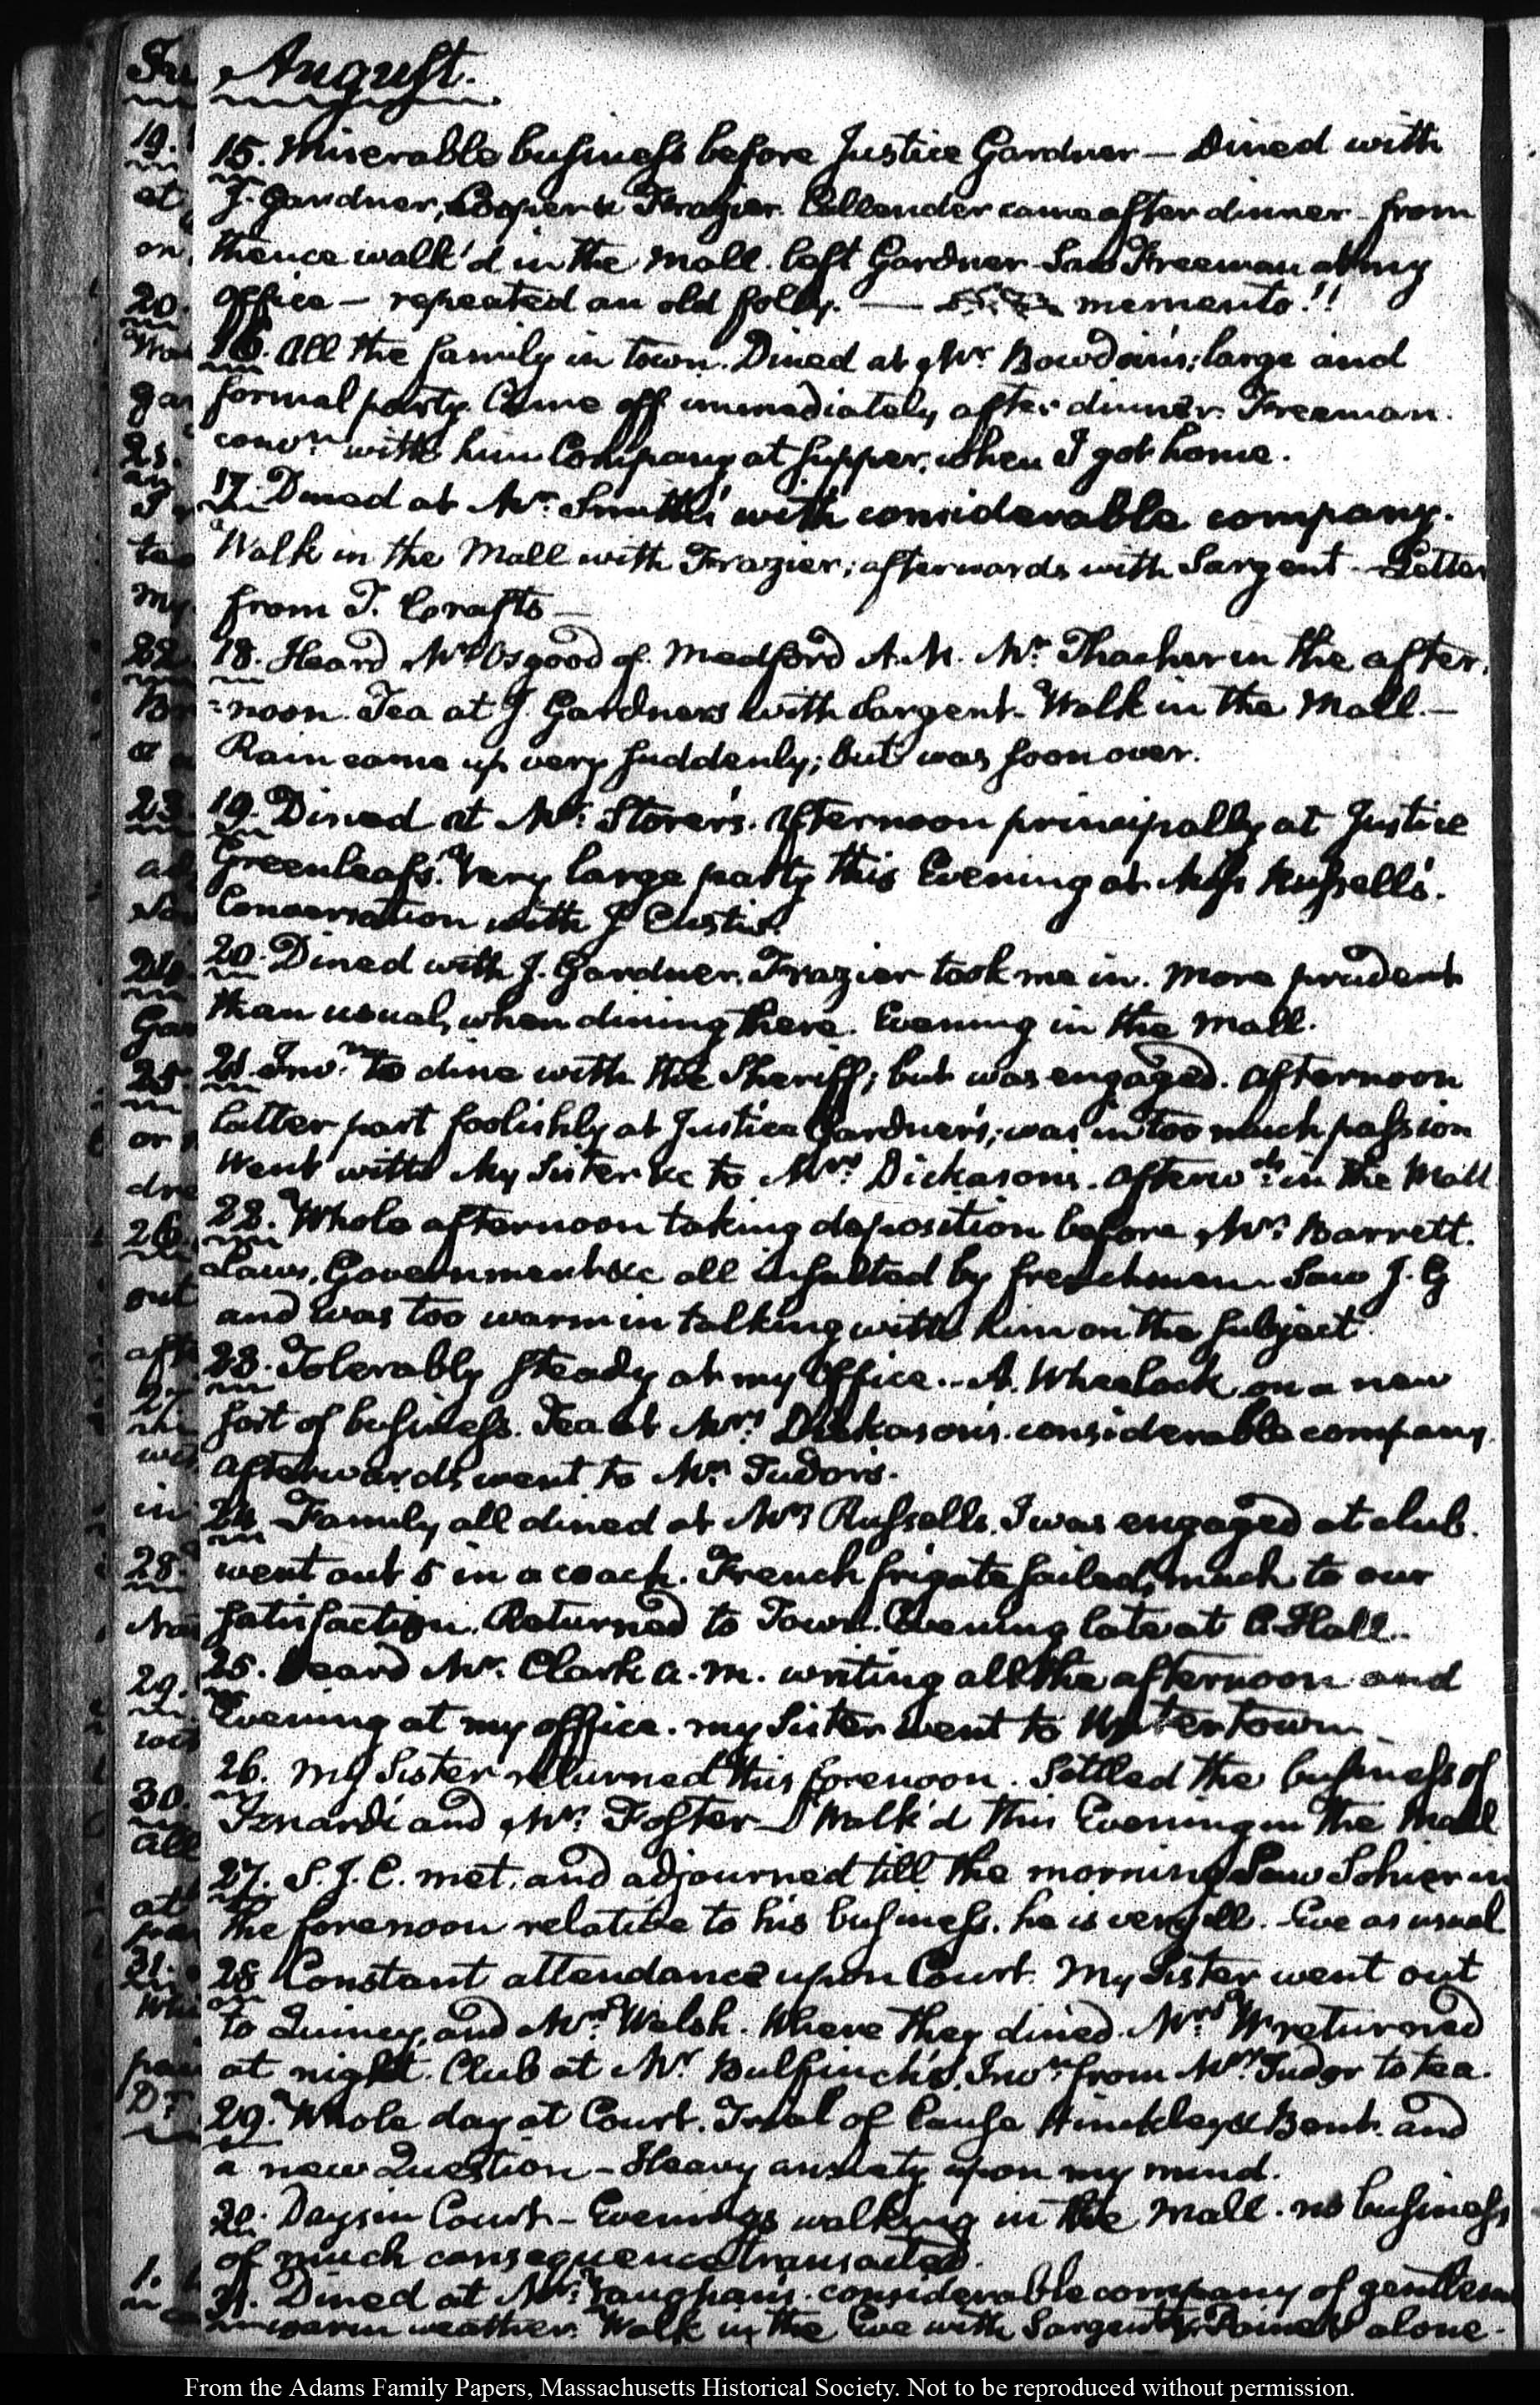 August.
15. Miserable business before Justice Gardner — Dined with
J. Gardner, Cooper & Frazier. Callender came after dinner - from
thence walk'd in the Mall. left Gardner - Saw Freeman at my
Office — repeated an old folly. — memento!!
16. All the family in town. Dined at Mr. Bowdoin's; large and
formal party. Came off immediately after dinner. Freeman.
convn. with him Company at supper, when I got home.
17. Dined at Mr. Smith's with considerable company.
Walk in the Mall with Frazier; afterwards with Sargent - Letter
from T. Crafts —
18. Heard Mr. Osgood of Medford A.M. Mr. Thacher in the after
=noon. Tea at J. Gardners with Sargent - Walk in the Mall. —
Rain came up very suddenly; but was soon over.
19. Dined at Mr. Storer's. Afternoon principally at Justice
Greenleafs. Very large party this Evening at Miss Russell's.
Conversation with J
20. Dined with J. Gardner. Frazier took me in. More prudent
than usual, when dining there. Evening in the Mall.
21. Invn. to dine with the Sheriff; but was engaged. Afternoon
latter part foolishly at Justice Gardner's; was in too much passion
Went with My Sister &c to Mrs. Dickason's. Afterwds. in the Mall
22. Whole afternoon taking deposition before Mr. Barrett.
Laws, Government &c all insulted by frenchmen. Saw J. G
and was too warm in talking with him on the subject.
23. Tolerably steady at my Office. - A. Wheelock on a new
sort of business. Tea at Mrs. Dickason's. considerable company.
Afterwards went to Mr. Tudor's.
24. Family all dined at Mrs Russells. I was engaged at club.
went out 5 in a coach. French frigate sailed, much to our
satisfaction. Returned to Town. Evening late at C. Hall.
25. Heard Mr. Clark a.m. writing all the afternoon and
Evening at my office. my Sister went to Watertown
26. My Sister returned this forenoon. Settled the business of
and Mr. Foster — Walk'd this Evening in the Mall
27. S.J.C. met, and adjourned till the morning Saw Sohier in
the forenoon relative to his business, he is very ill. - Eve as usual
28 Constant attendance upon Court. My Sister went out
to Quincy, and Mrs. Welsh. Where they dined. Mrs. W returned
at night. Club at Mr. Bulfinch's. Invn. from Mrs. Tudor to tea.
29. Whole day at Court. Trial of Cause Hinckley & Bent. and
a new Question - Heavy anxiety upon my mind.
30. Days in Court - Evenings walking in the Mall. no business
of much consequence transacted.
31. Dined at Mr. Vaughan's. considerable company of gentlem
warm weather. Walk in the Eve with Sargent & alone -
From the Adams Family Papers, Massachusetts Historical Society. Not to be reproduced without permission.